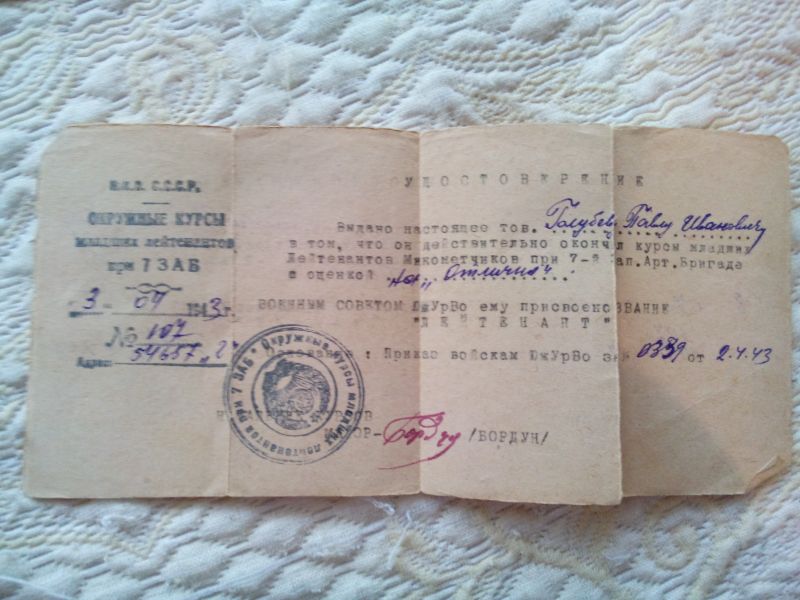 Н.К.О. С.С.С.Р.
ОКРУЖНЫЕ КУРСЫ
младших лейтенантов
при 7 ЗАБ
"3" 04 1943 г.
№ 107
Адрес: 54657 "2"
УДОСТОВЕРЕНИЕ
Выдано настоящее тов. Голубеву Павлу Ивановичу
в том, что он действительно окончил курсы младших
Лейтенантов Минометчиков при 7-й Зап.Арт.Бригаде
с оценкой на "Отлично"
ВОЕННЫМ СОВЕТОМ ЮжУрВо ему присвоено ЗВАНИЕ
"ЛЕЙТЕНАНТ"
Основание: Приказ войскам ЮжУрВо за № 0339 от 2.4.43
МАЙОР- Бордун /БОРДУН/
Окружные курсы младших лейтенантов при 7 ЗАБ